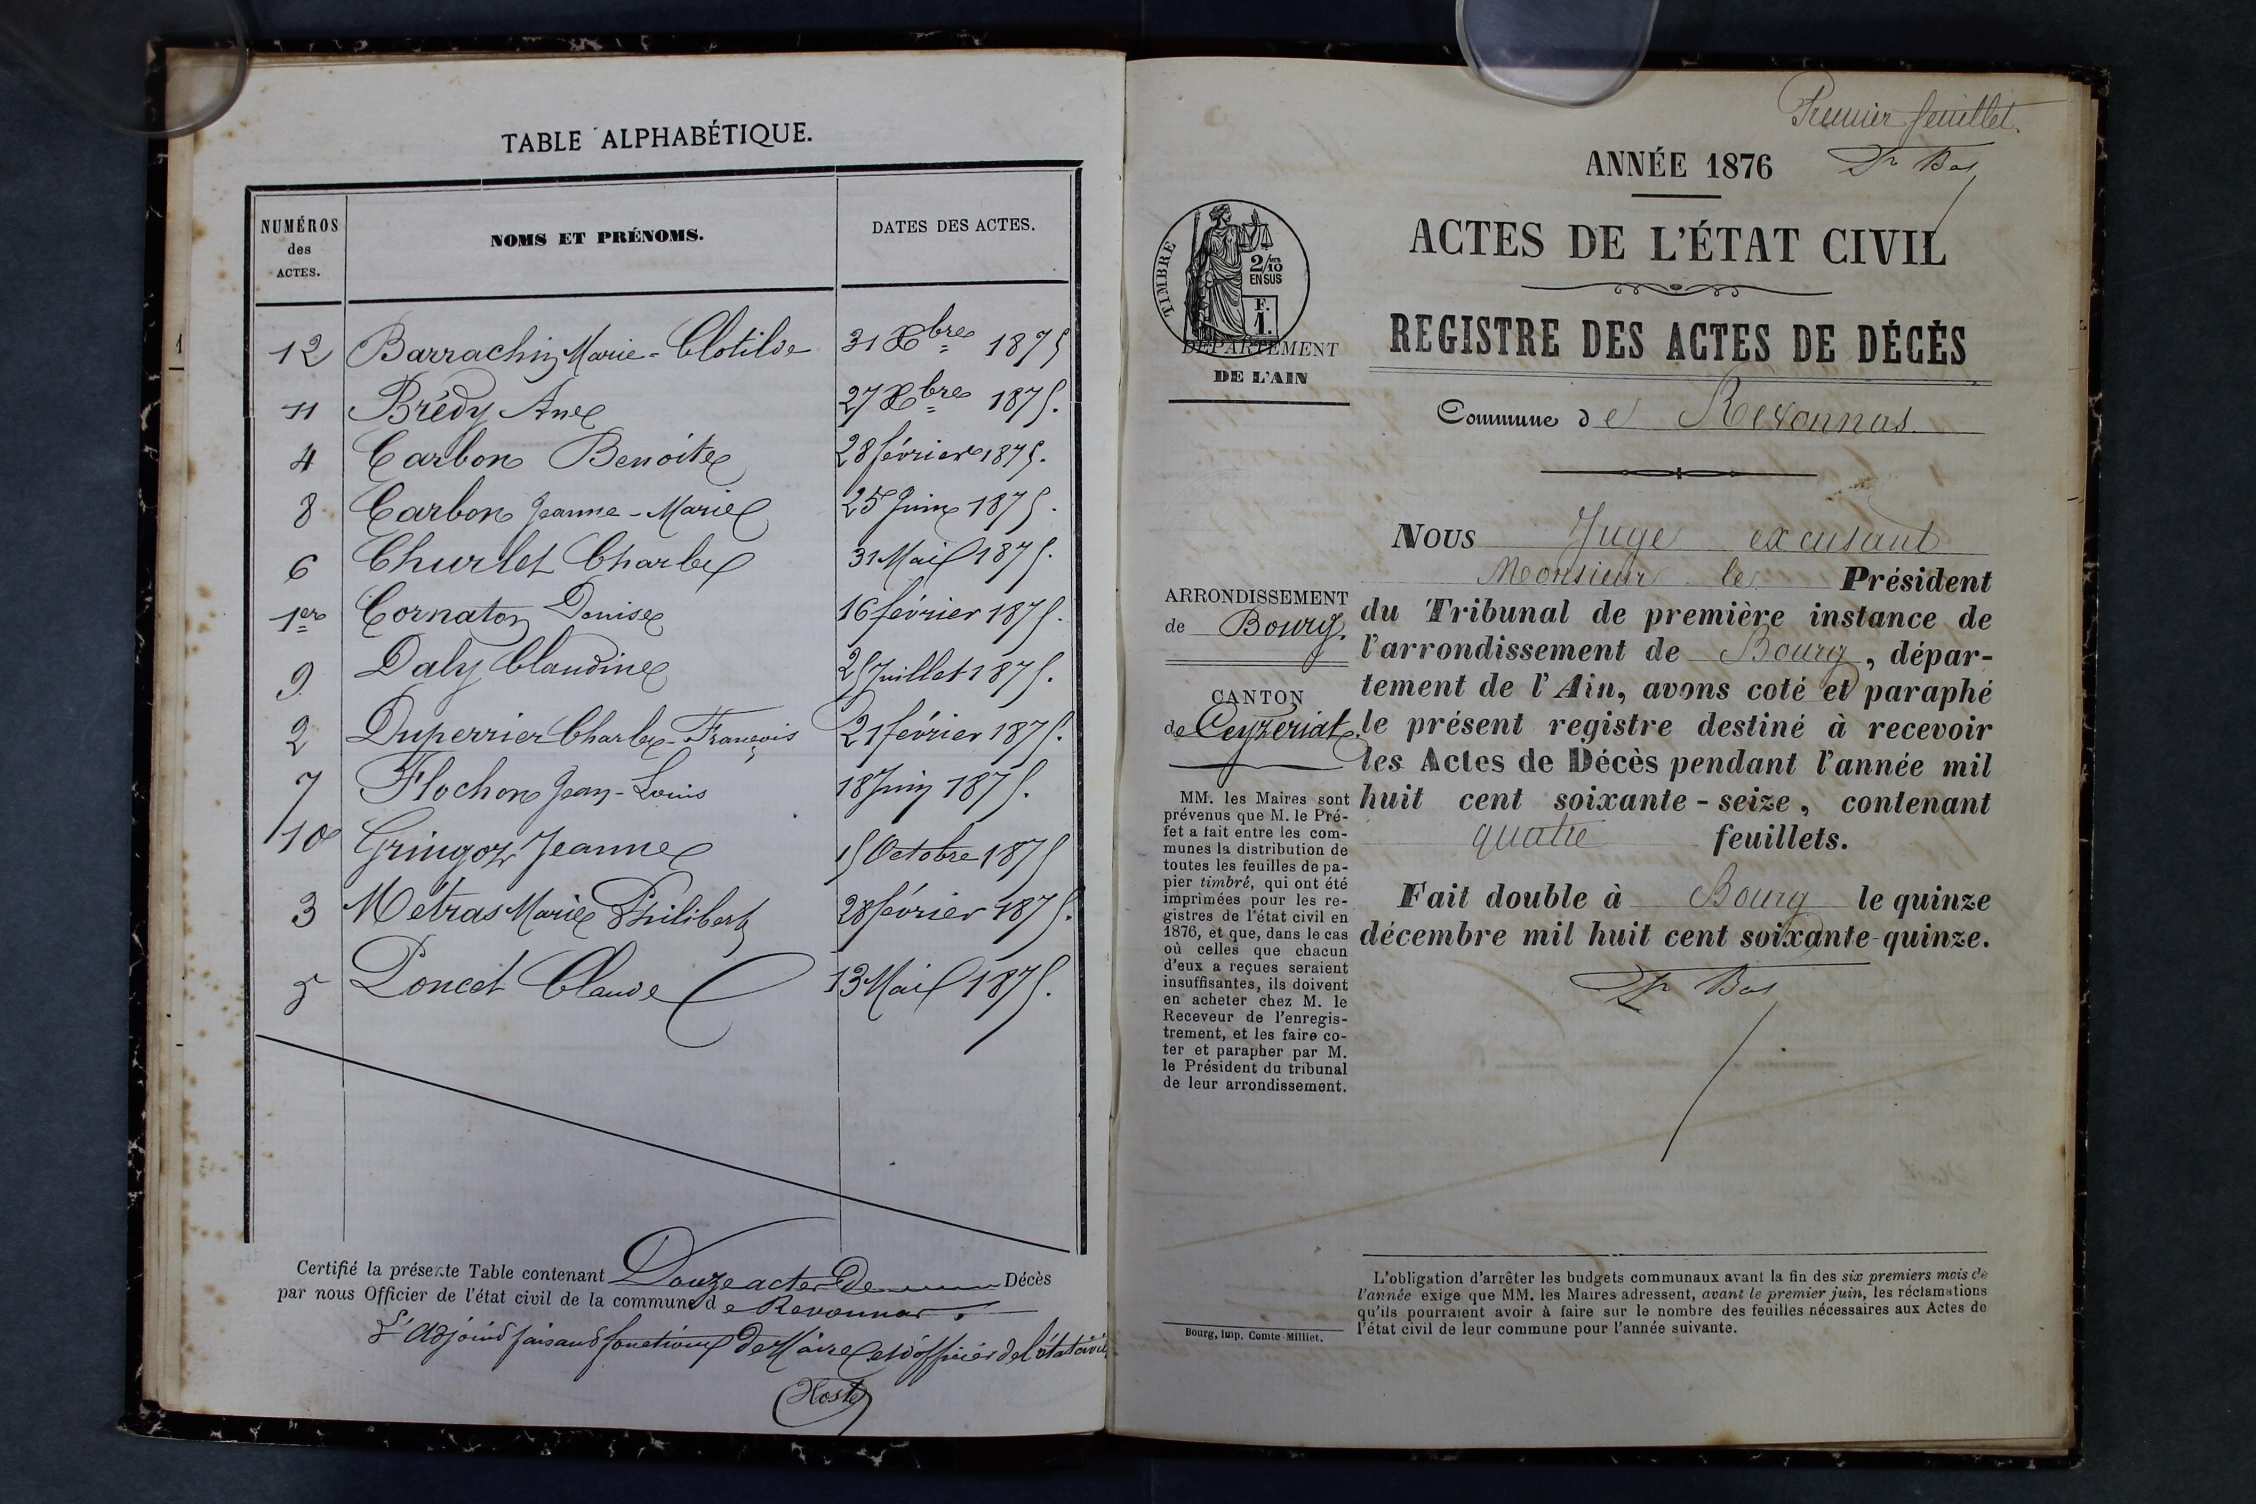 TABLE ALPHABÉTIQUE.
NUMÉROS des ACTES. NOMS ET PRÉNOMS. DATES DES ACTES.
12 Barrachin Marie-Clotilde 31 Xbre 1875
11 Brédy Ane 27 Xbre 1875.
4 Carbon Benoite 28 février 1875.
8 Carbon Jeanne-Marie 25 Juin 1875.
6 Churlet Charles 31 Mai 1875.
1er Cornaton Denise 16 février 1875.
9 Daly Claudine 25 Juillet 1875.
2 Duperrier Charles-François 21 février 1875.
7 Flochon Jean-Louis 18 Juin 1875.
10 Gringoz Jeanne 15 Octobre 1875
3 Métras Marie Philibert 28 février 1875.
5 Poncet Claude 13 Mai 1875.
Certifié la présente Table contenant Douze actes De Décès
par nous Officier de l'état civil de la commune de Revonnas.
L'adjoind faisand fonctions de Maire et d'officier de l'état civil
1
Premier feuillet.
ANNÉE 1876
ACTES DE L'ÉTAT CIVIL
REGISTRE DES ACTES DE DÉCÈS
TIMBRE
2/10 EN SUS
F. 1.
DÉPARTEMENT
DE L'AIN
Commune de Revonnas.
ARRONDISSEMENT
de Bourg.
CANTON
de Ceyzeriat.
MM. les Maires sont
prévenus que M. le Pré-
fet a fait entre les com-
munes la distribution de
toutes les feuilles de pa-
pier timbré, qui ont été
imprimées pour les re-
gistres de l'état civil en
1876, et que, dans le cas
où celles que chacun
d'eux a reçues seraient
insuffisantes, ils doivent
en acheter chez M. le
Receveur de l'enregis-
trement, et les faire co-
ter et parapher par M.
le Président du tribunal
de leur arrondissement.
Bourg, Imp. Comte-Milliet.
NOUS Juge excusant
Monsieur le Président
du Tribunal de première instance de
l'arrondissement de Bourg, dépar-
tement de l'Ain, avons coté et paraphé
le présent registre destiné à recevoir
les Actes de Décès pendant l'année mil
huit cent soixante-seize, contenant
quatre feuillets.
Fait double à Bourg le quinze
décembre mil huit cent soixante-quinze.
L'obligation d'arrêter les budgets communaux avant la fin des six premiers mois de
l'année exige que MM. les Maires adressent, avant le premier juin, les réclamations
qu'ils pourraient avoir à faire sur le nombre des feuilles nécessaires aux Actes de
l'état civil de leur commune pour l'année suivante.